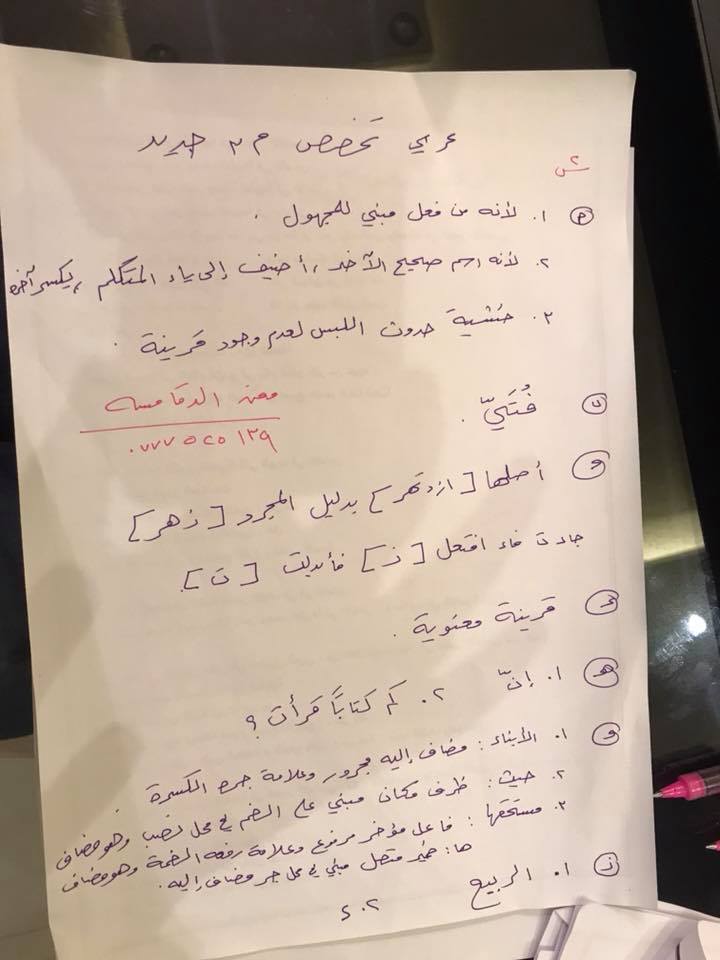 عربي تخصص م٣ جديد
س٢
(م) ١. لأنه من فعل مبني للمجهول .
٢. لأنه اسم صحيح الآخر، أضيف إلى ياء المتكلم، يكسر آخره
٣. خشية حدوث اللبس لعدم وجود قرينة .
معن الدقامسه
٠٧٧٧٥٢٥١٣٩
(ب) فُتَيّ .
(ج) أصلها [ازتهر] بدليل المجرد [زهر]
جاءت فاء افتعل [ز] فأبدلت [ت].
(د) قرينة معنوية .
(هـ) ١. إنّ ٢. كم كتابًا قرأت ؟
(و) ١. الأبناء : مضاف إليه مجرور وعلامة جره الكسرة .
٢. حيث : ظرف مكان مبني على الضم في محل نصب وهو مضاف
٣. مستحقها : فاعل مؤخر مرفوع وعلامة رفعه الضمة وهو مضاف
ها : ضمير متصل مبني في محل جر مضاف إليه .
(ز) ١. الربيع
٢. ٤